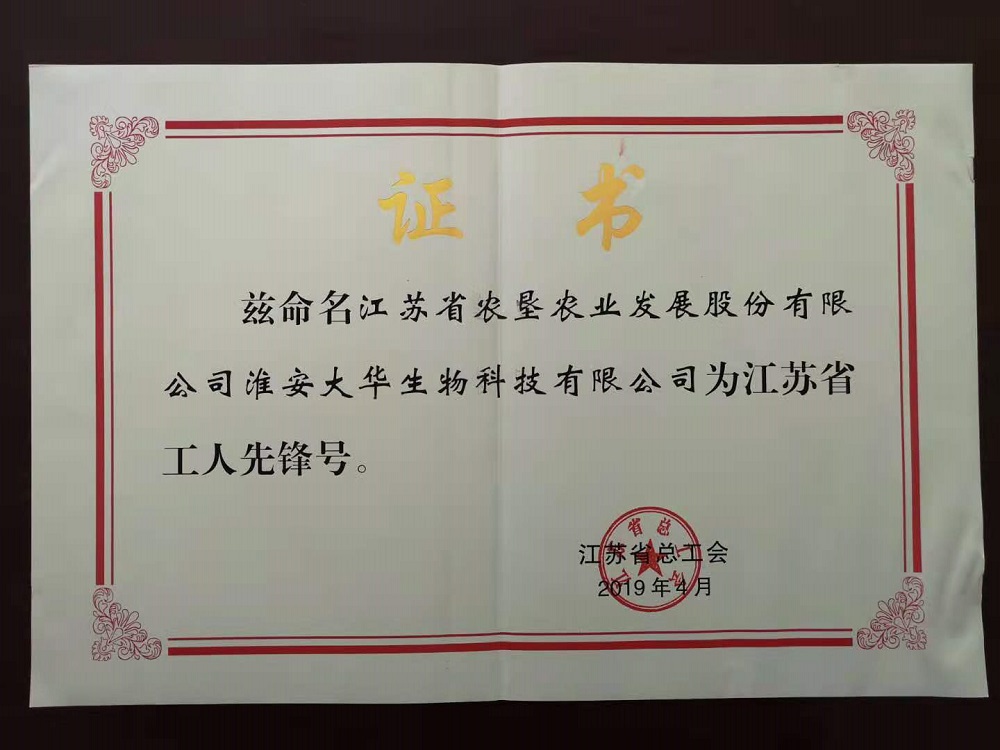 证 书
兹命名江苏省农垦农业发展股份有限
公司淮安大华生物科技有限公司为江苏省
工人先锋号。
江苏省总工会
江苏省总工会
2019年4月